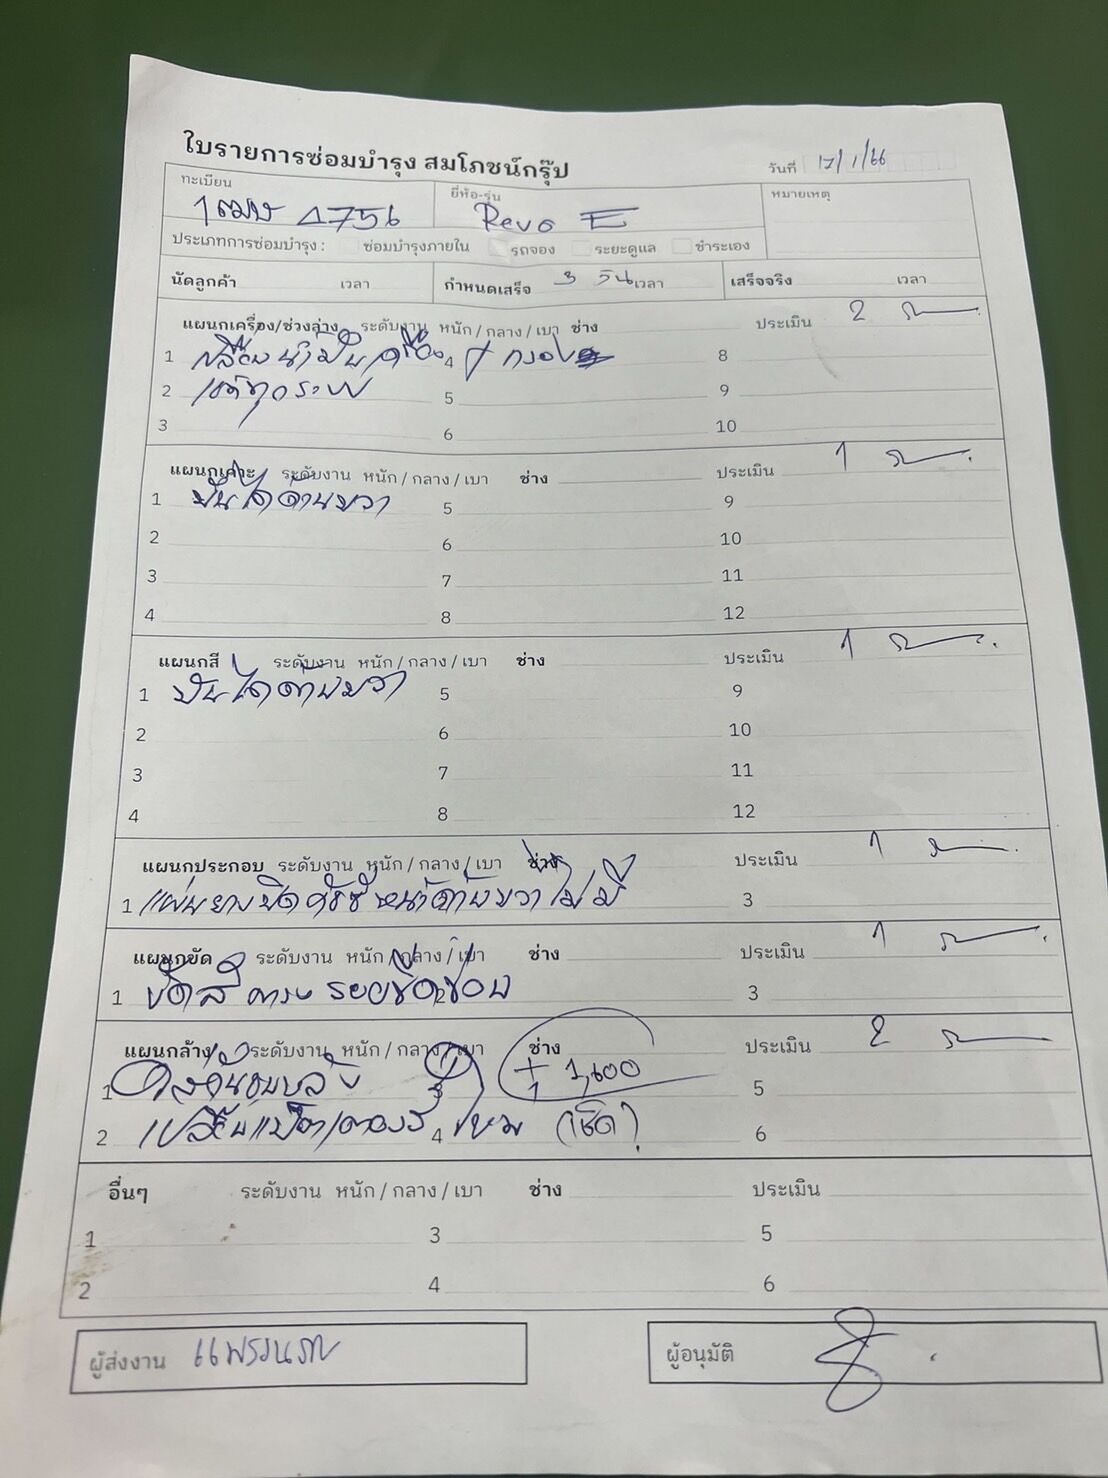 ใบรายการซ่อมบำรุง สมโภชน์กรุ๊ป
วันที่ 17/1/66
ทะเบียน
ยี่ห้อ-รุ่น
หมายเหตุ
Revo E
ประเภทการซ่อมบำรุง : ซ่อมบำรุงภายใน รถจอง ระยะดูแล ชำระเอง
นัดลูกค้า เวลา กำหนดเสร็จ 3 วัน เวลา เสร็จจริง เวลา
แผนกเครื่อง/ช่วงล่าง ระดับงาน หนัก / กลาง / เบา ช่าง ประเมิน 2
1 เปลี่ยนน้ำมันเครื่อง 4 + กรอง 8
2 เช็คทุกระบบ 5 9
3 6 10
แผนกเคาะ ระดับงาน หนัก / กลาง / เบา ช่าง ประเมิน 1
1 บันไดด้านขวา 5 9
2 6 10
3 7 11
4 8 12
แผนกสี ระดับงาน หนัก / กลาง / เบา ช่าง ประเมิน 1
1 บันไดด้านขวา 5 9
2 6 10
3 7 11
4 8 12
แผนกประกอบ ระดับงาน หนัก / กลาง / เบา ช่าง ประเมิน 1
1 แผ่นยางปิดคัชซีหน้าด้านขวาไม่มี 3
แผนกขัด ระดับงาน หนัก / กลาง / เบา ช่าง ประเมิน 1
1 ขัดสี ลบรอยขีดข่วน 2 3
แผนกล้าง ระดับงาน หนัก / กลาง / เบา ช่าง ประเมิน 2
1 3 + 1,600 5
2 4 ไหม (เช็ค) 6
อื่นๆ ระดับงาน หนัก / กลาง / เบา ช่าง ประเมิน
1 3 5
2 4 6
ผู้ส่งงาน
ผู้อนุมัติ